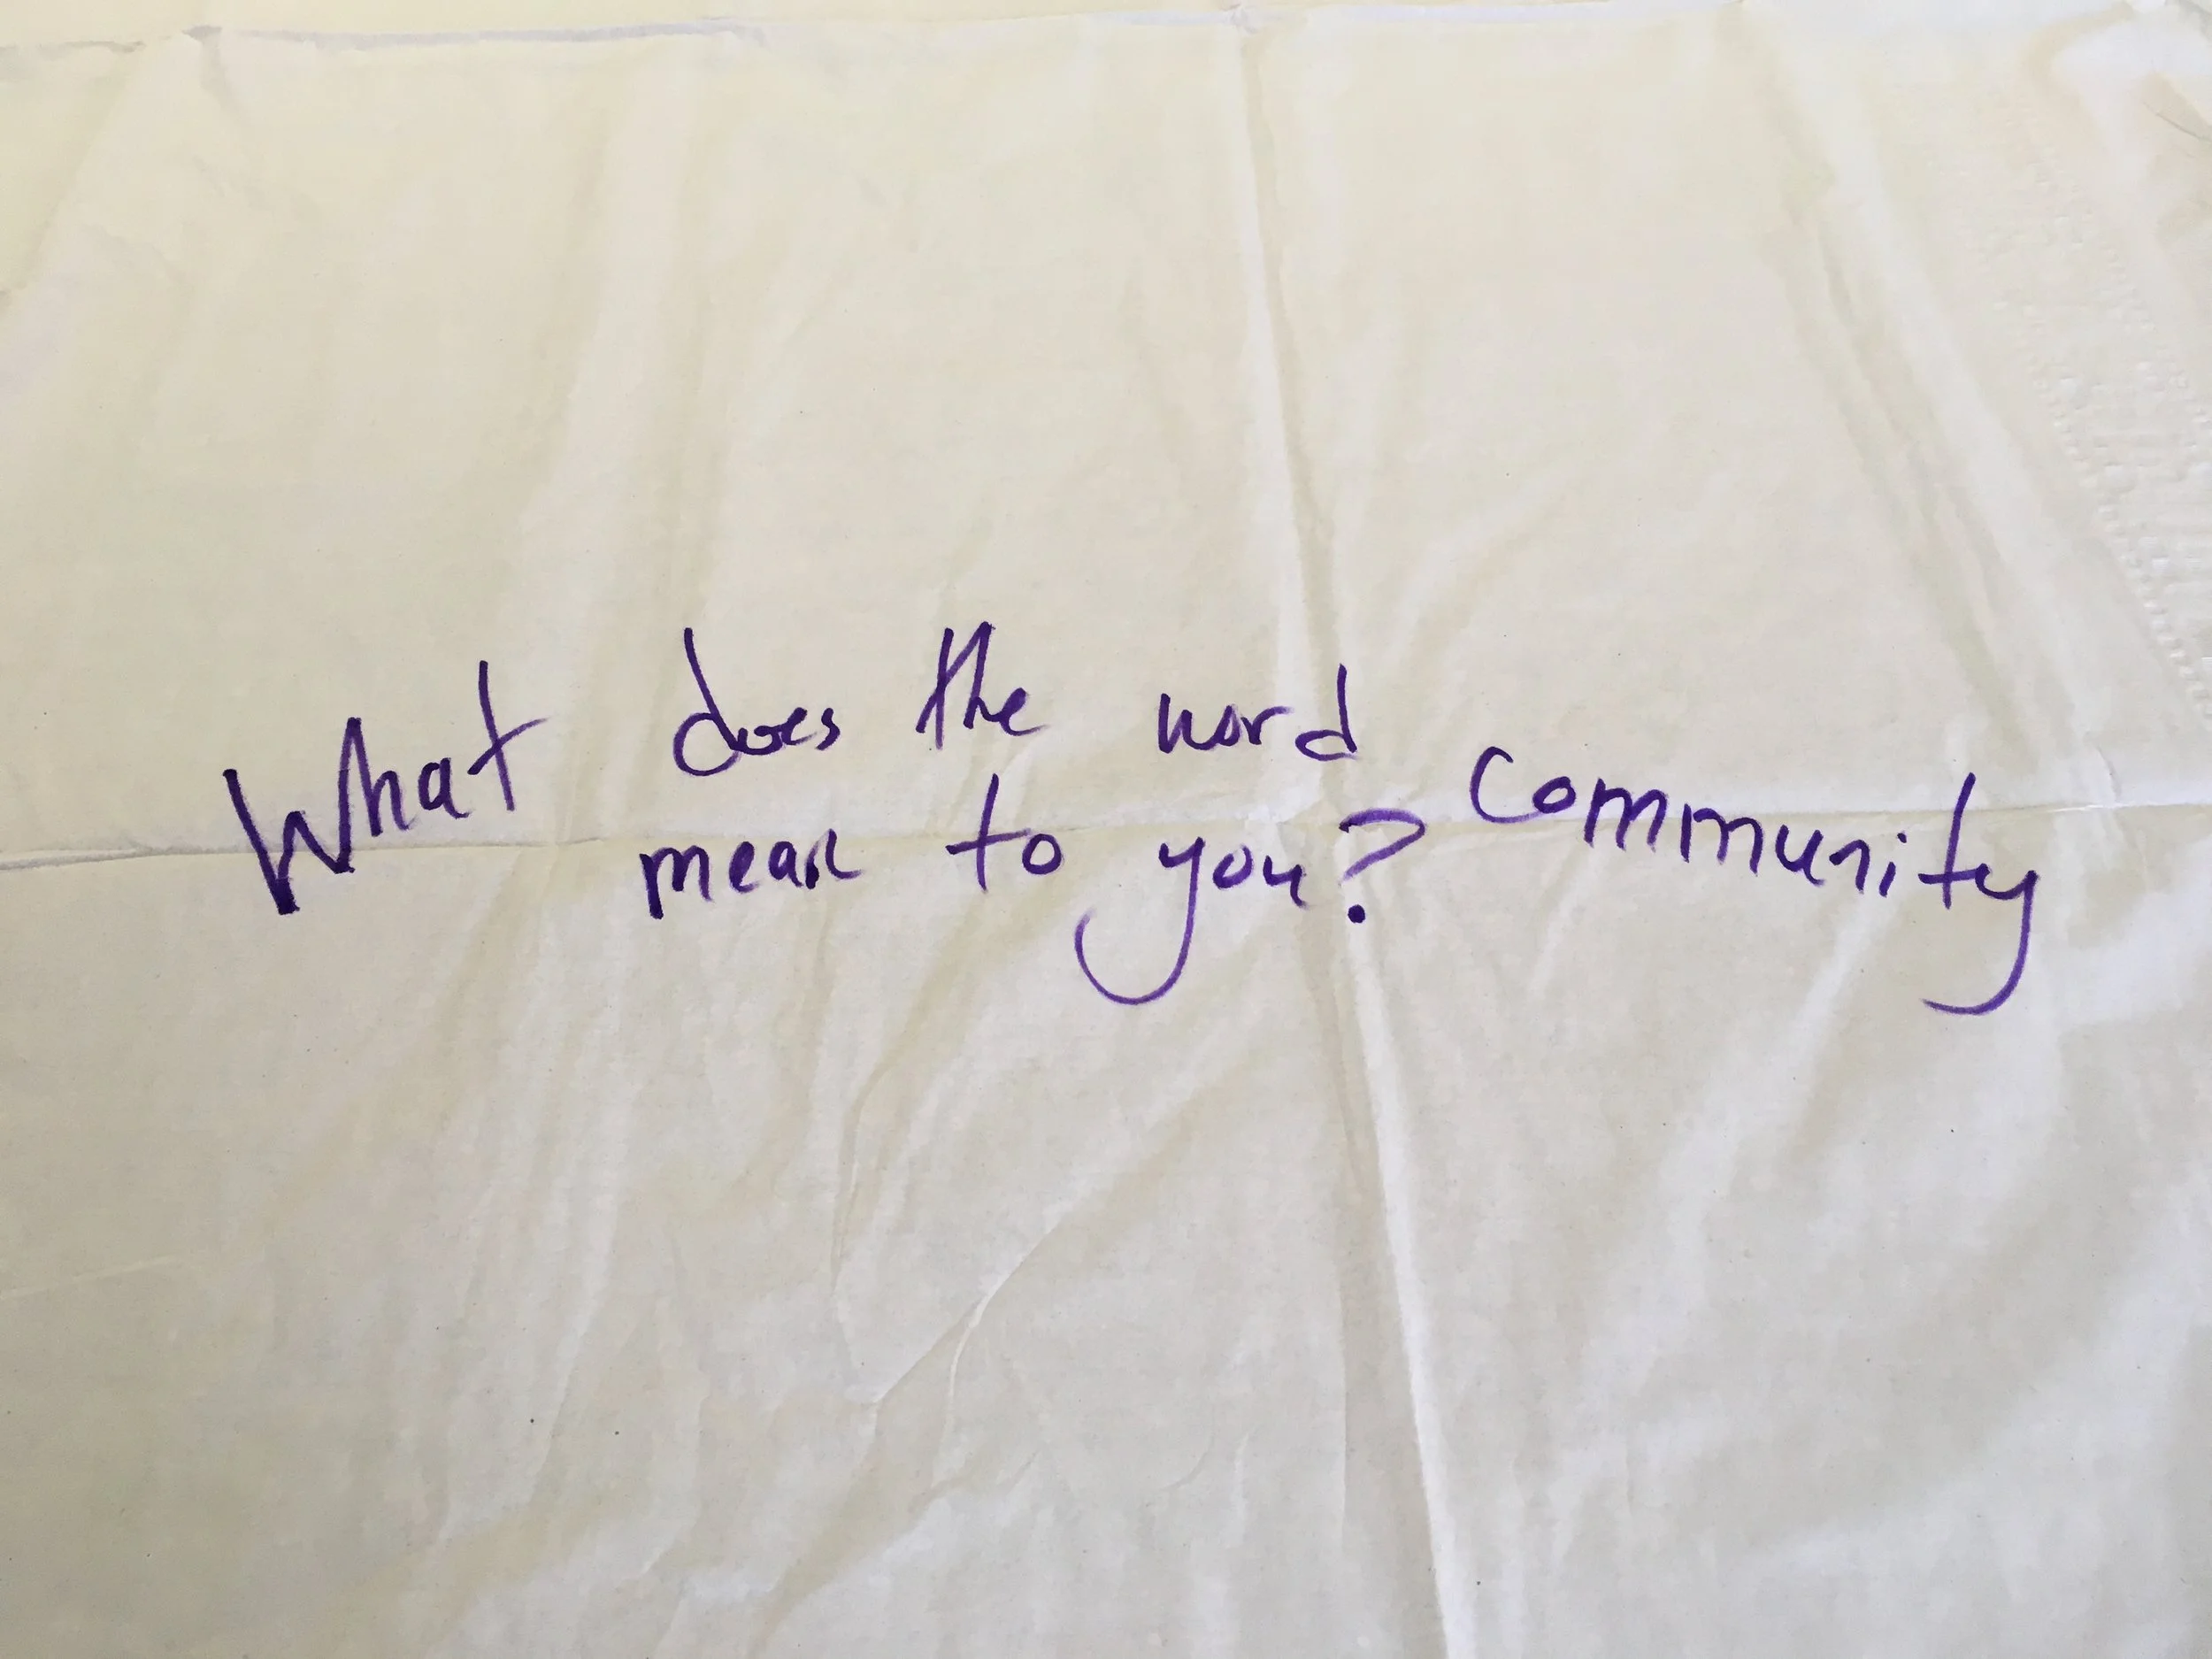 What does the word community
mean to you?